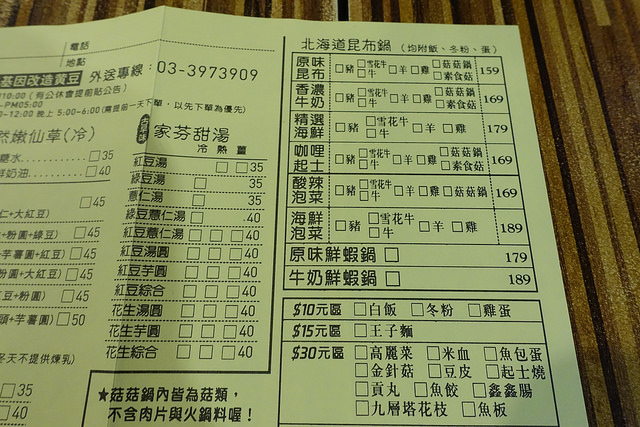 電話
地點
基因改造黃豆 外送專線：03-3973909
10:00 (有公休會提前貼公告)
-PM05:00
0~12:00 晚上 5:00~6:00(需提前一天下單，以先下單為優先)
然嫩仙草(冷)
糖水 □35
鮮奶油 □40
□45
仁+大紅豆)
+粉圓+綠豆) □45
+芋薯圓+紅豆) □45
粉圓+大紅豆) □45
豆+粉圓) □45
頭+芋薯圓) □50
冬天不提供煉乳)
□35
□40
□40
古早味 家芬甜湯
冷 熱 薑
紅豆湯 □ □35
綠豆湯 □ 35
薏仁湯 □ 35
綠豆薏仁湯 □ .40
紅豆薏仁湯 □ □ □40
紅豆湯圓 □ □ □40
紅豆芋圓 □ □ □40
紅豆綜合 □ □ □40
花生湯圓 □ □ □40
花生芋圓 □ □ □40
花生綜合 □ □ □40
★菇菇鍋內皆為菇類，
不含肉片與火鍋料喔！
北海道昆布鍋 (均附飯、冬粉、蛋)
原味昆布 □豬 □雪花牛 □牛 □羊 □雞 □菇菇鍋 □素食菇 159
香濃牛奶 □豬 □雪花牛 □牛 □羊 □雞 □菇菇鍋 □素食菇 169
精選海鮮 □豬 □雪花牛 □牛 □羊 □雞 179
咖哩起士 □豬 □雪花牛 □牛 □羊 □雞 □菇菇鍋 □素食菇 169
酸辣泡菜 □豬 □雪花牛 □牛 □羊 □雞 □菇菇鍋 169
海鮮泡菜 □豬 □雪花牛 □牛 □羊 □雞 189
原味鮮蝦鍋 □ 179
牛奶鮮蝦鍋 □ 189
$10元區 □白飯 □冬粉 □雞蛋
$15元區 □王子麵
$30元區 □高麗菜 □米血 □魚包蛋
□金針菇 □豆皮 □起士燒
□貢丸 □魚餃 □鑫鑫腸
□九層塔花枝 □魚板